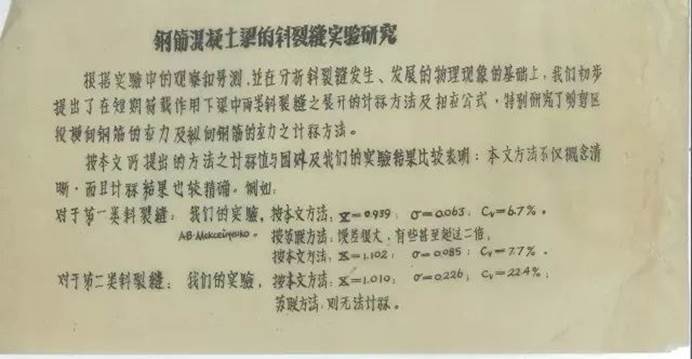 钢筋混凝土梁的斜裂缝实验研究
根据实验中的观察和量测,並在分析斜裂缝发生、发展的物理现象的基础上,我们初步
提出了在短期荷载作用下梁中两类斜裂缝之展开的计算方法及相应公式,特别研究了明剪区
段横向钢筋的应力及纵向钢筋的应力之计算方法。
按本文所提出的方法之计算值与国外及我们的实验结果比较表明:本文方法不仅概念清
晰,而且计算结果也较精确。例如:
对于第一类斜裂缝: 我们的实验,按本文方法: X=0.939; σ=0.063; Cv=6.7%。
按苏联方法:误差很大,有些甚至超过二倍;
按本文方法: X=1.102; σ=0.085; Cv=7.7%。
对于第二类斜裂缝: 我们的实验, 按本文方法: X=1.010; σ=0.226; Cv=22.4%;
苏联方法,则无法计算。